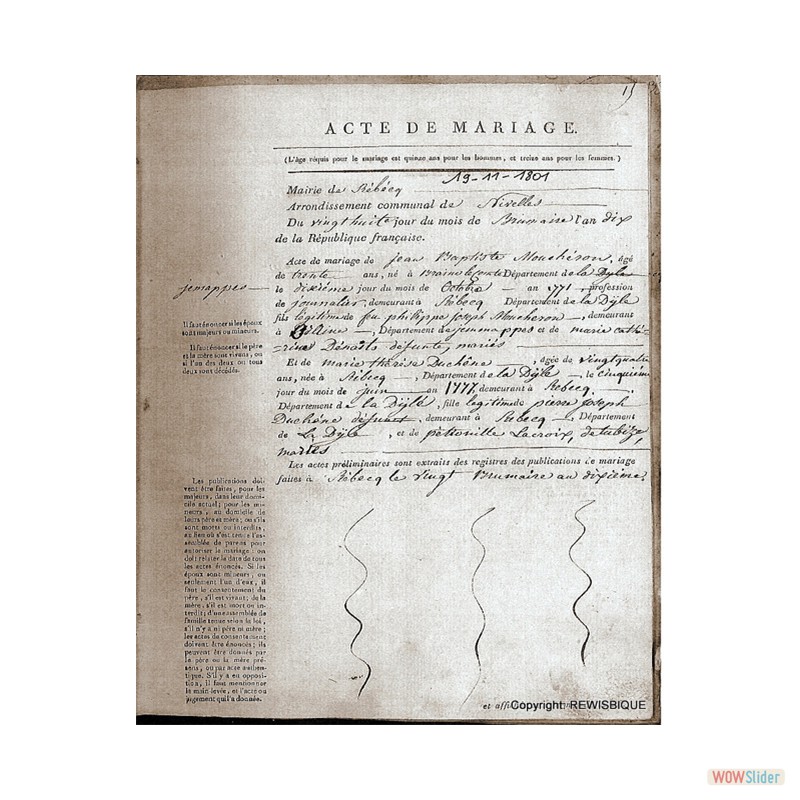 15
ACTE DE MARIAGE.
(L'âge réquis pour le mariage est quinze ans pour les hommes, et treize ans pour les femmes.)
19-11-1801
Mairie de Rébécq
Arrondissement communal de Nivelles
Du vingt huite jour du mois de Brumaire l'an dix
de la République française.
Acte de mariage de jean Baptiste Mouchéron, âgé
de trente ans, né à Département de la Dyle
jemappes
le dixième jour du mois de Octobre an 1771, profession
de journalier, demeurant à Rébecq Département de la Dyle
fils légitime de feu philippe joseph Moucheron, demeurant
à , Département de jemmappes et de marie cathé-
rine défunte, mariés
Il faut énoncer si les époux
sont majeurs ou mineurs.
Il faut énoncer si le père
et la mère sont vivans, ou
si l'un des deux ou tous
deux sont décédés.
Et de marie thérèse Duchêne, âgée de vingt quatre
ans, née à Rébecq, Département de la Dÿle, le cinquième
jour du mois de juin an 1777, demeurant à Rebecq,
Département de la Dÿle, fille légitime de pierre joseph
Duchêne défunt, demeurant à Rebecq, Département
de La Dyle, et de pétronille Lacroix, de tubize,
mariés
Les actes préliminaires sont extraits des registres des publications de mariage
faites à Rébecq le vingt Brumaire an dixième.
Les publications doi-
vent être faites, pour les
majeurs, dans leur domi-
cile actuel; pour les mi-
neurs, au domicile de
leurs père et mère; ou s'ils
sont morts ou interdits,
au lieu où s'est tenue l'as-
semblée de parens pour
autoriser le mariage: on
doit relater la date de tous
les actes énoncés. Si les
époux sont mineurs, ou
seulement l'un d'eux, il
faut le consentement du
père, s'il est vivant; de la
mère, s'il est mort ou in-
terdit; d'une assemblée de
famille tenue selon la loi,
s'il n'y a ni père ni mère;
les actes de consentement
doivent être énoncés; ils
peuvent être donnés par
le père ou la mère pré-
sens, ou par acte authen-
tique. S'il y a eu opposi-
tion, il faut mentionner
la main levée, et l'acte ou
jugement qui l'a donnée.
et affi
Copyright: REWISBIQUE
WOWSlider